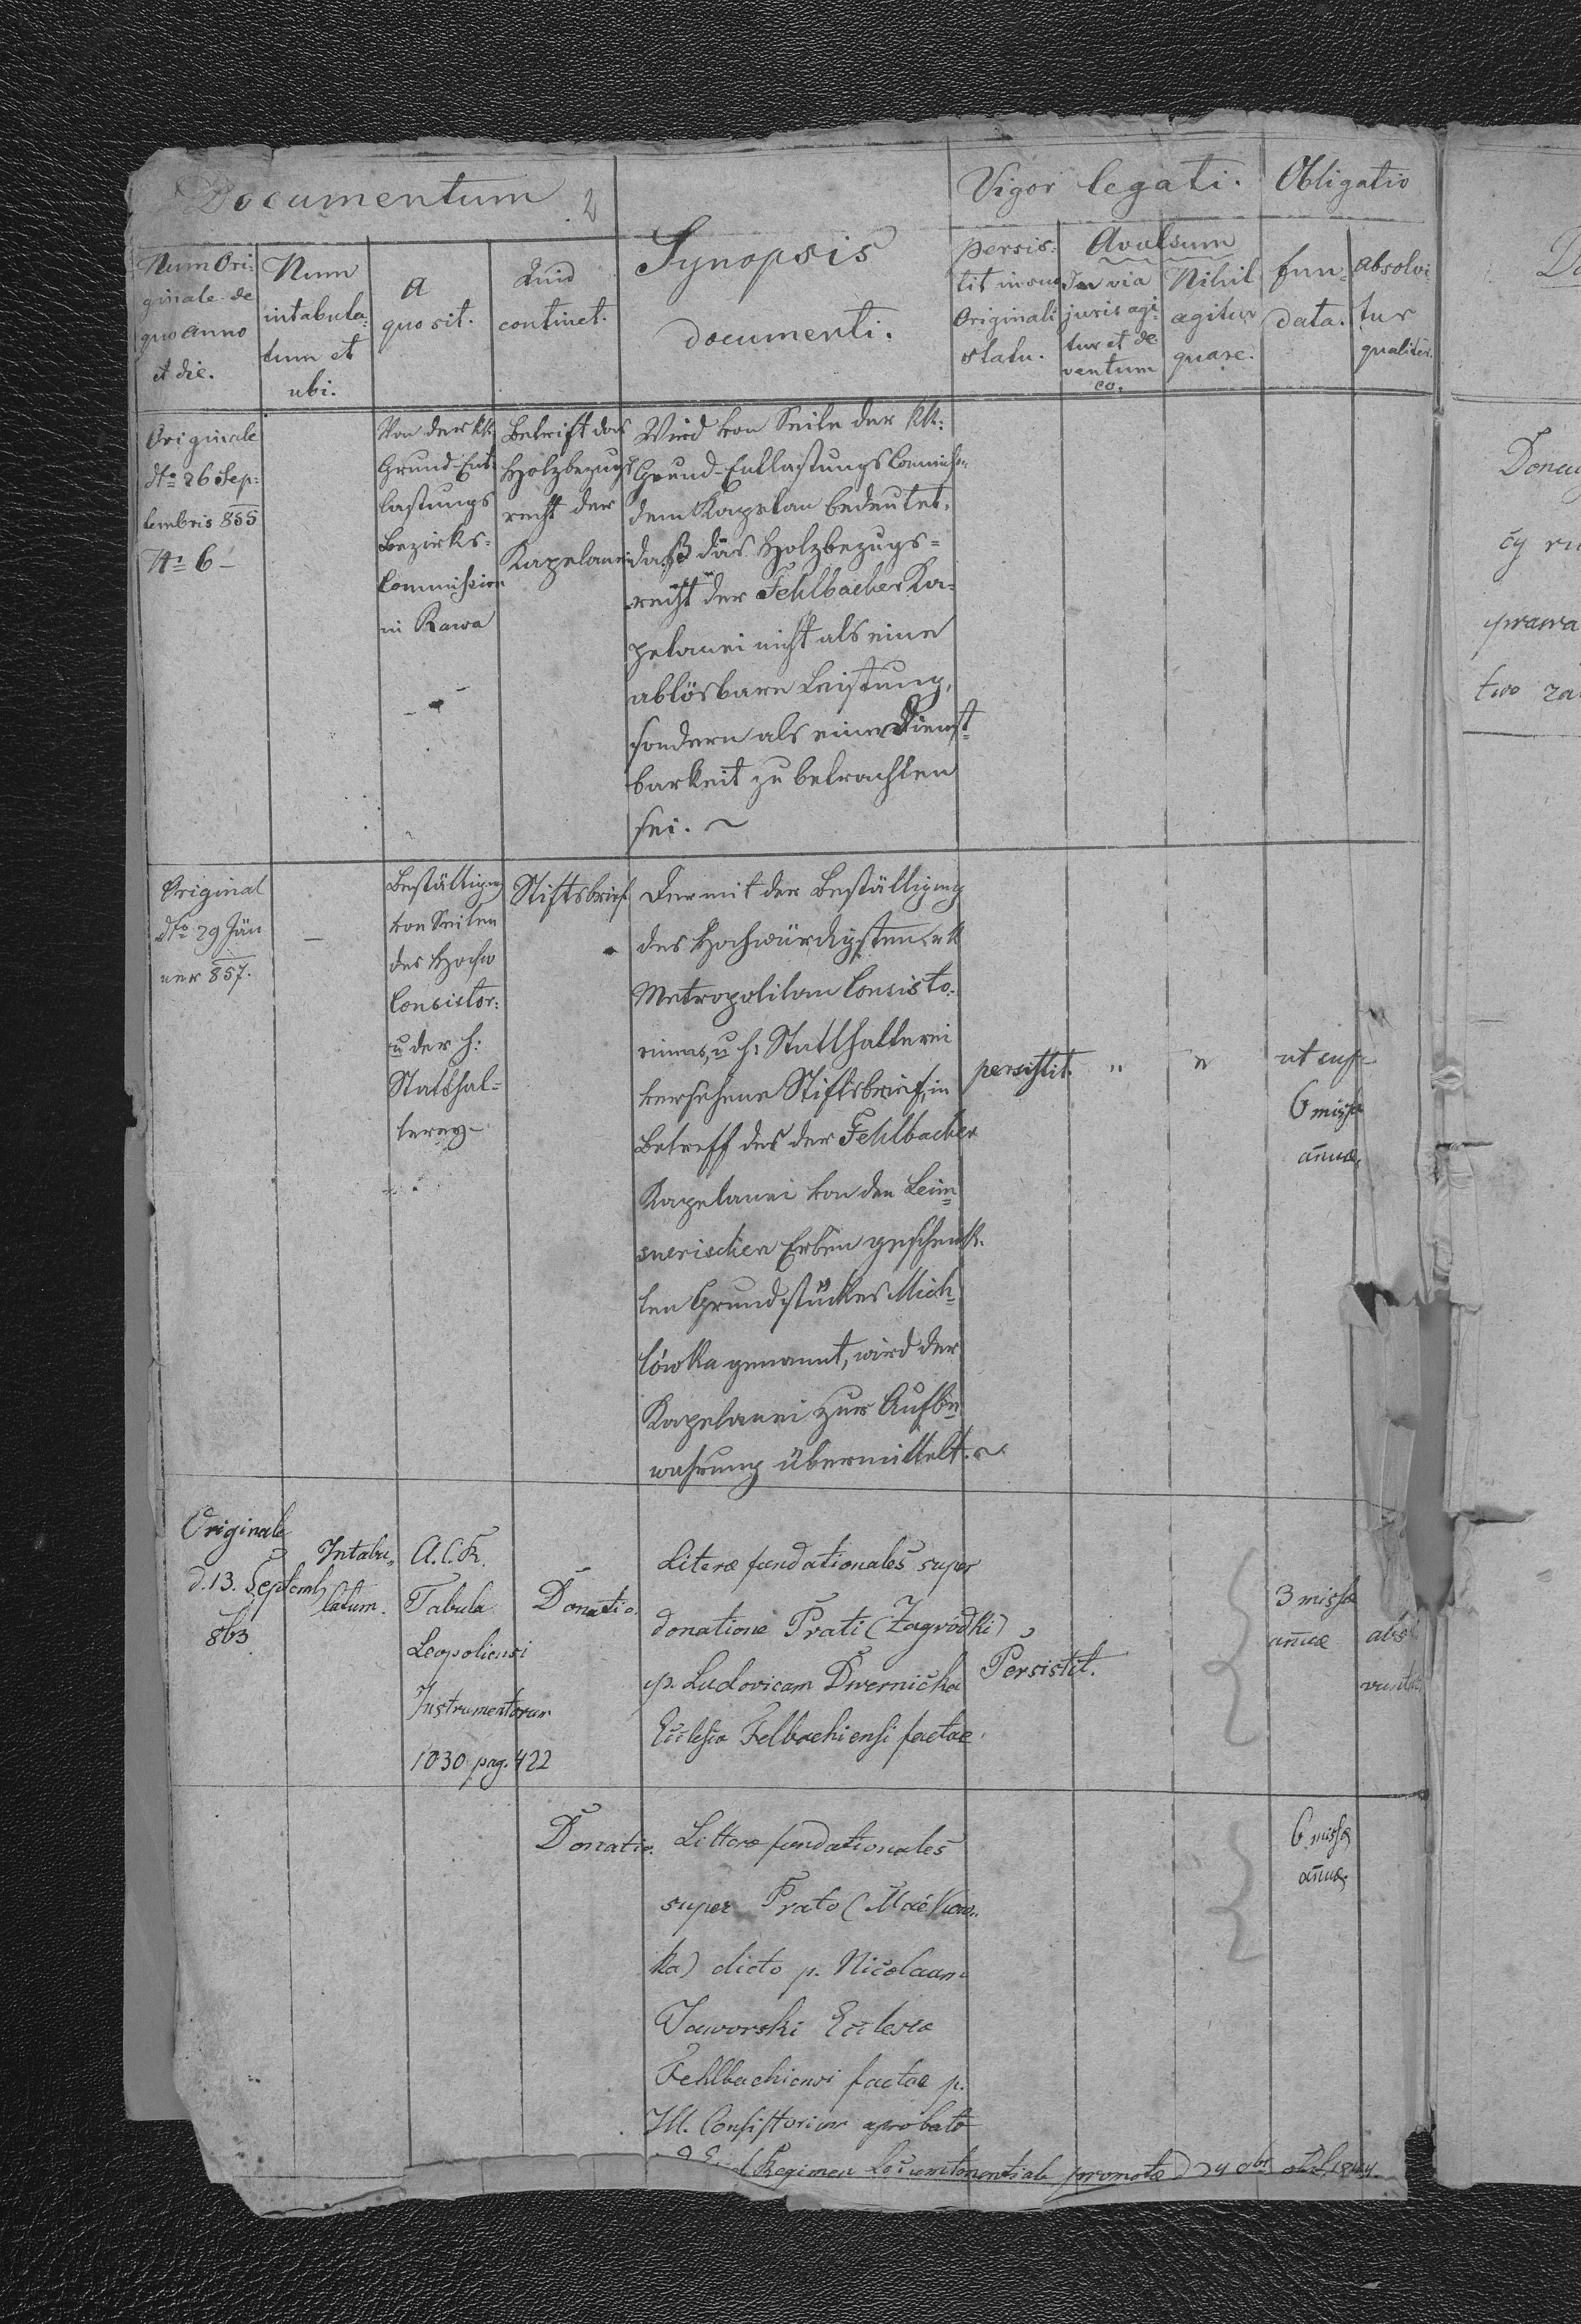 Documentum
2
Synopsis
documenti.
Vigor legati.
Obligatio
Num Ori:
ginale de
quo anno
et die.
Num
intabula:
tum et
ubi.
a
quo sit.
Quid
continet.
persis:
tit in suo
Originali
statu.
Avulsum
In via
juris agi:
tur et de
ventum
eo.
Nihil
agitur
quare.
fun-
data.
absolvi:
tur
qualiter.
Originale
dto 26 Sep:
tembris 855
No 6 –
Von der kk.
Grund-Ent-
lastungs
Bezirks-
Commission
in Rawa
Betrift das
Holzbezugs
recht der
Kapelanei
Wird von Seite der kk:
Grund-Entlastungs Commiss:
dem Kapelan bedeutet,
daß das Holzbezugs=
recht der Fehlbacher Ka-
pelanei nicht als eine
ablösbare Leistung,
sondern als eine Dienst-
barkeit zu betrachten
sei. ~
Original
dto 29 Jän
ner 857.
–
Bestättigung
von Seiten
des Hochw
Consistor:
u der h:
Statthal=
terey –
Stiftsbrief.
Der mit der Bestättigung
des Hochwürdigsten
Metropolitan Consisto-
riums, u h: Statthalterei
versehene Stiftsbrief, in
Betreff des der Fehlbacher
Kapelanei von den Leim-
snerischen Erben geschenk-
ten Grundstückes Mich-
lówka genannt, wird der
Kapelanei zur Aufbe-
wahrung übermittelt. ~
persistit. " "
6 missæ
annuæ,
Originale
d. 13. Septemb
863
Intabu-
latum.
A. C. R.
Tabula
Leopoliensi
Instrumentorum
1030 pag. 422
Donatio.
Literæ fundationales super
donatione Prati (Zagródki)
p. Ludovicam Dwernicka
Ecclesia Felbachiensi factae.
Persistit.
3 missæ
annuæ
Donatio.
Litteræ fundationales
super Prato (Maćkow-
ka) dicto p. Nicolaum
Jaworski Ecclesiæ
Fehlbachiensi factae p.
Ill. Consistorium aprobato
Regimen Locumtenentiale promotæ
Donacy
cy
prawa
two